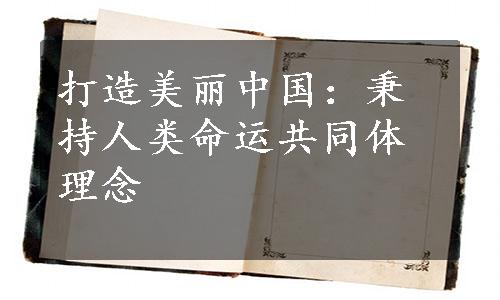 打造美丽中国：秉
持人类命运共同体
理念